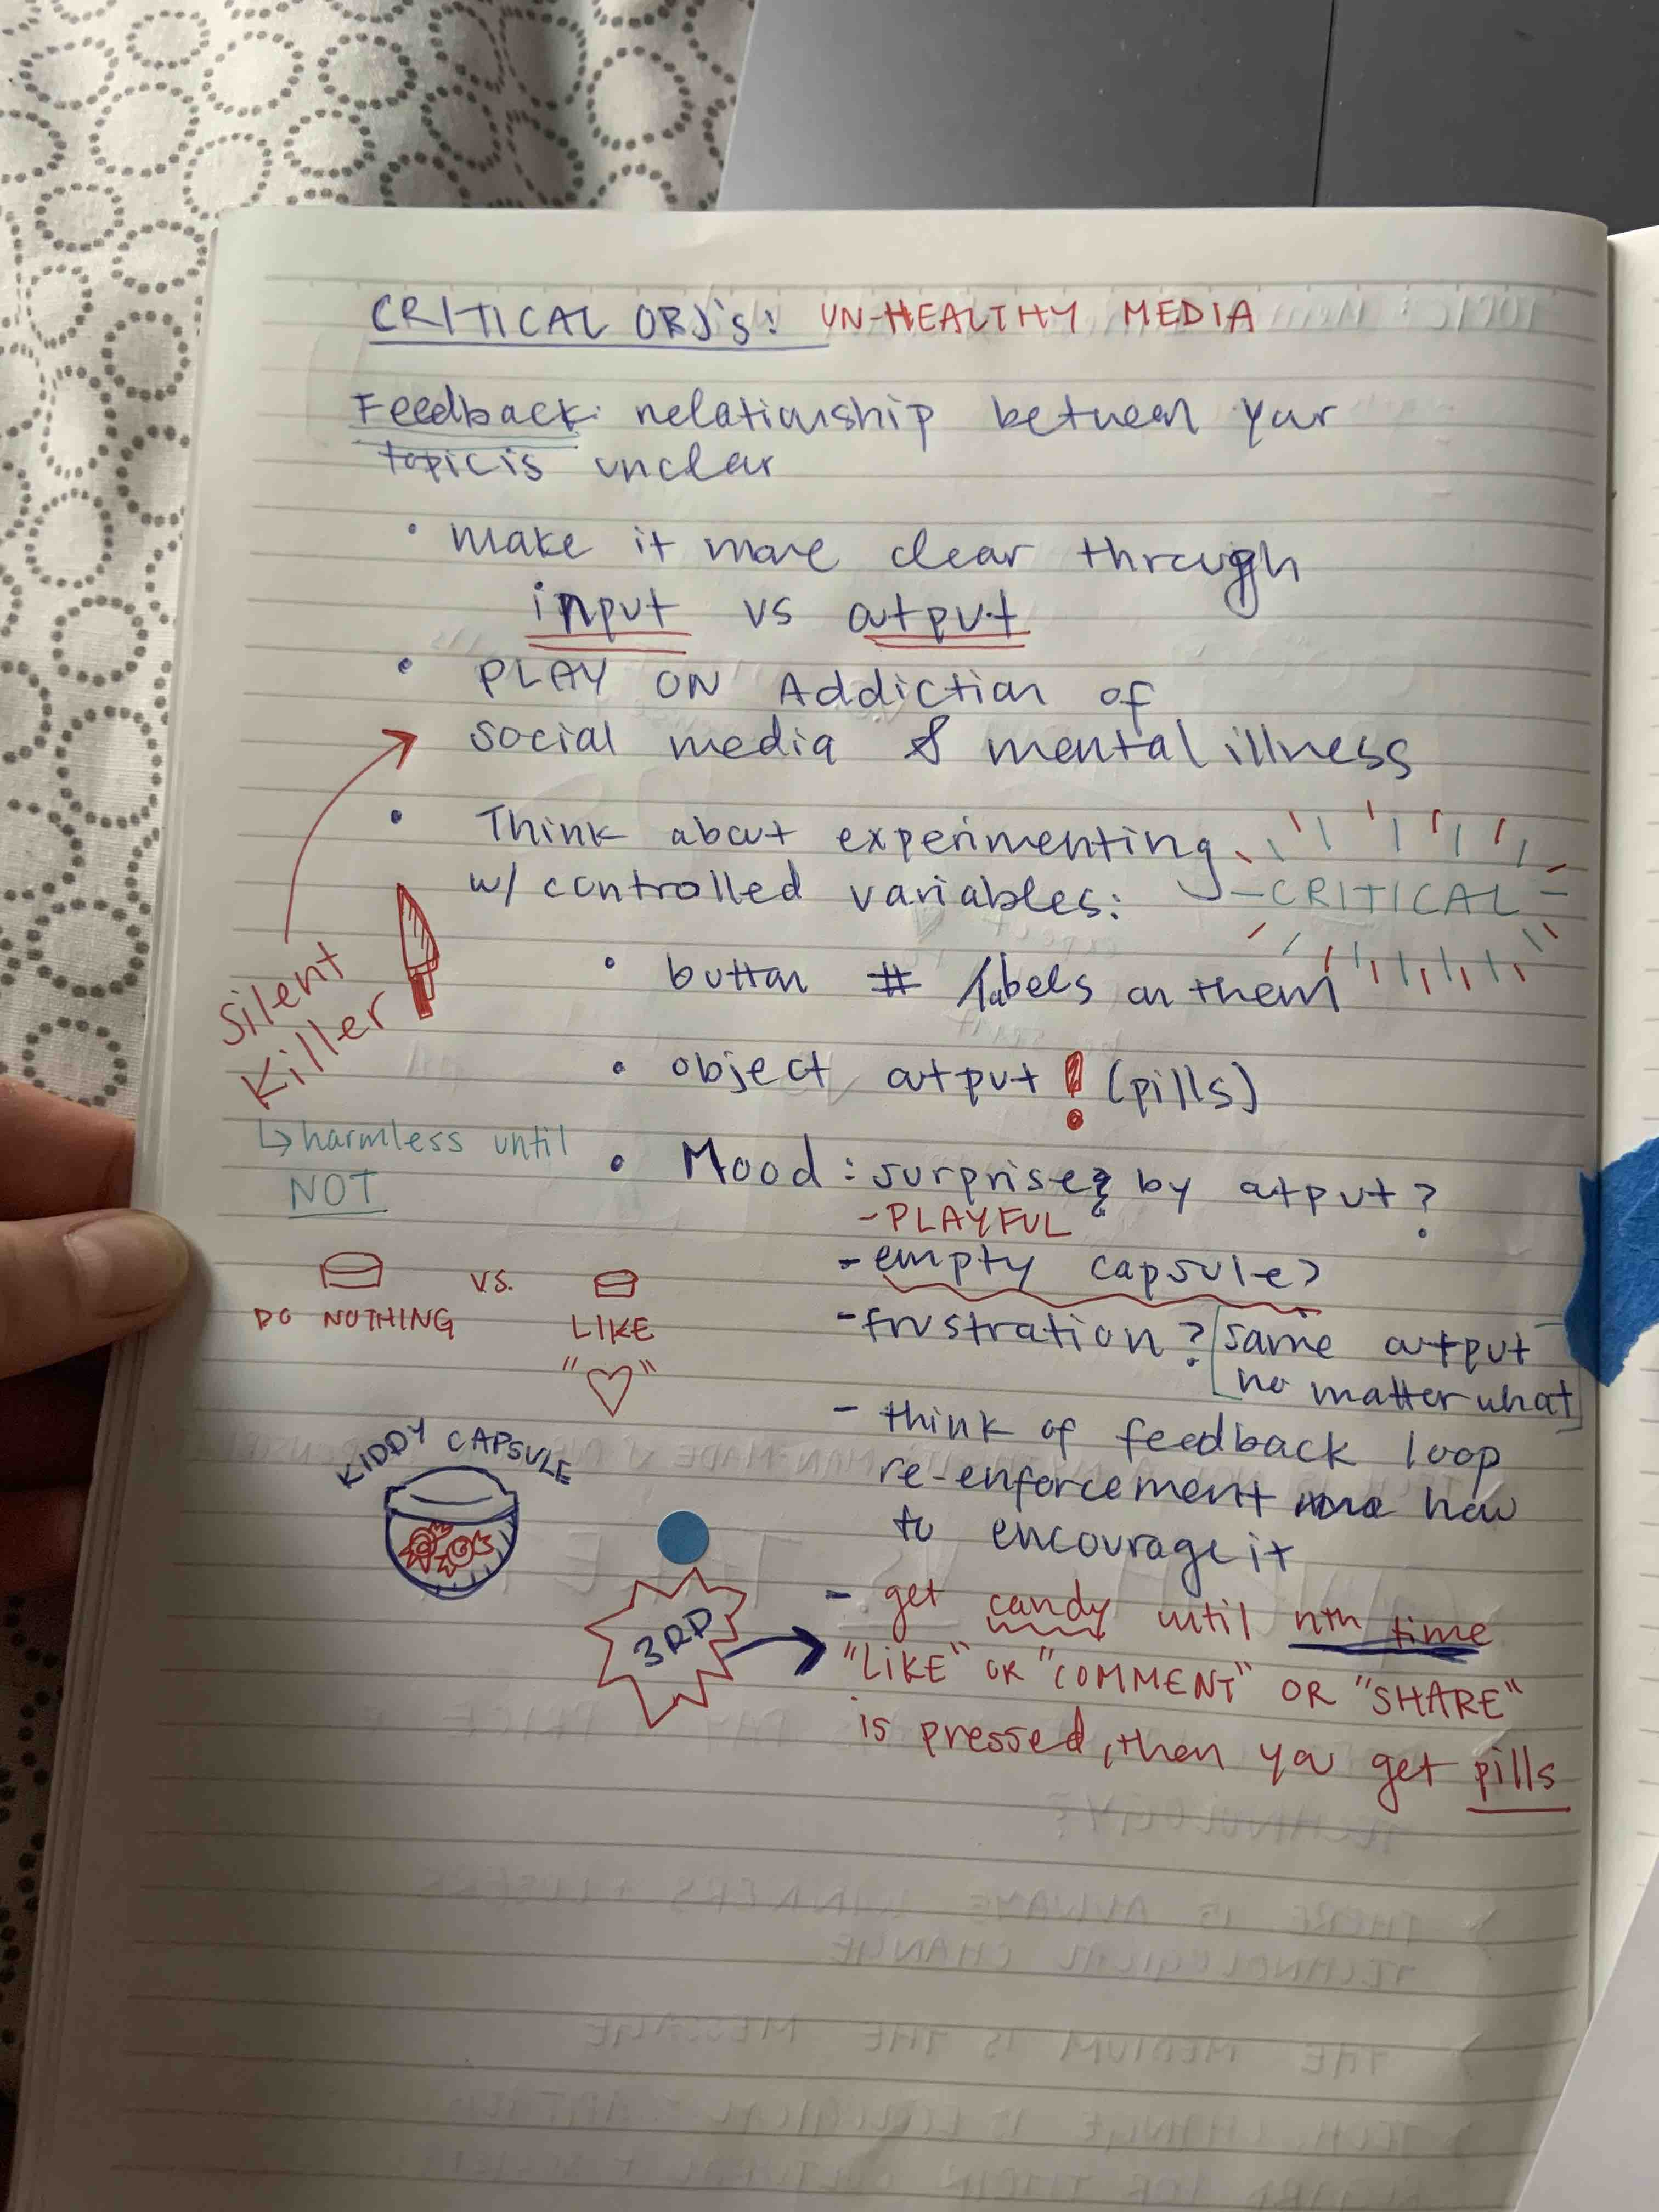 CRITICAL OBJ's: UN-HEALTHY MEDIA
Feedback: relationship between your
topic is unclear
• make it more clear through
input vs output
• PLAY ON Addiction of
social media & mental illness
• Think about experimenting
w/ controlled variables:
- CRITICAL -
• button # labels on them
• object output ! (pills)
• Mood: surprise? by output?
- PLAYFUL
- empty capsule?
- frustration? [same output
no matter what]
- think of feedback loop
re-enforcement how
to encourage it
- get candy until nth time
"LIKE" OR "COMMENT" OR "SHARE"
is pressed, then you get pills
Silent
Killer
↳ harmless until
NOT
DO NOTHING vs. LIKE
"♡"
KIDDY CAPSULE
3RD